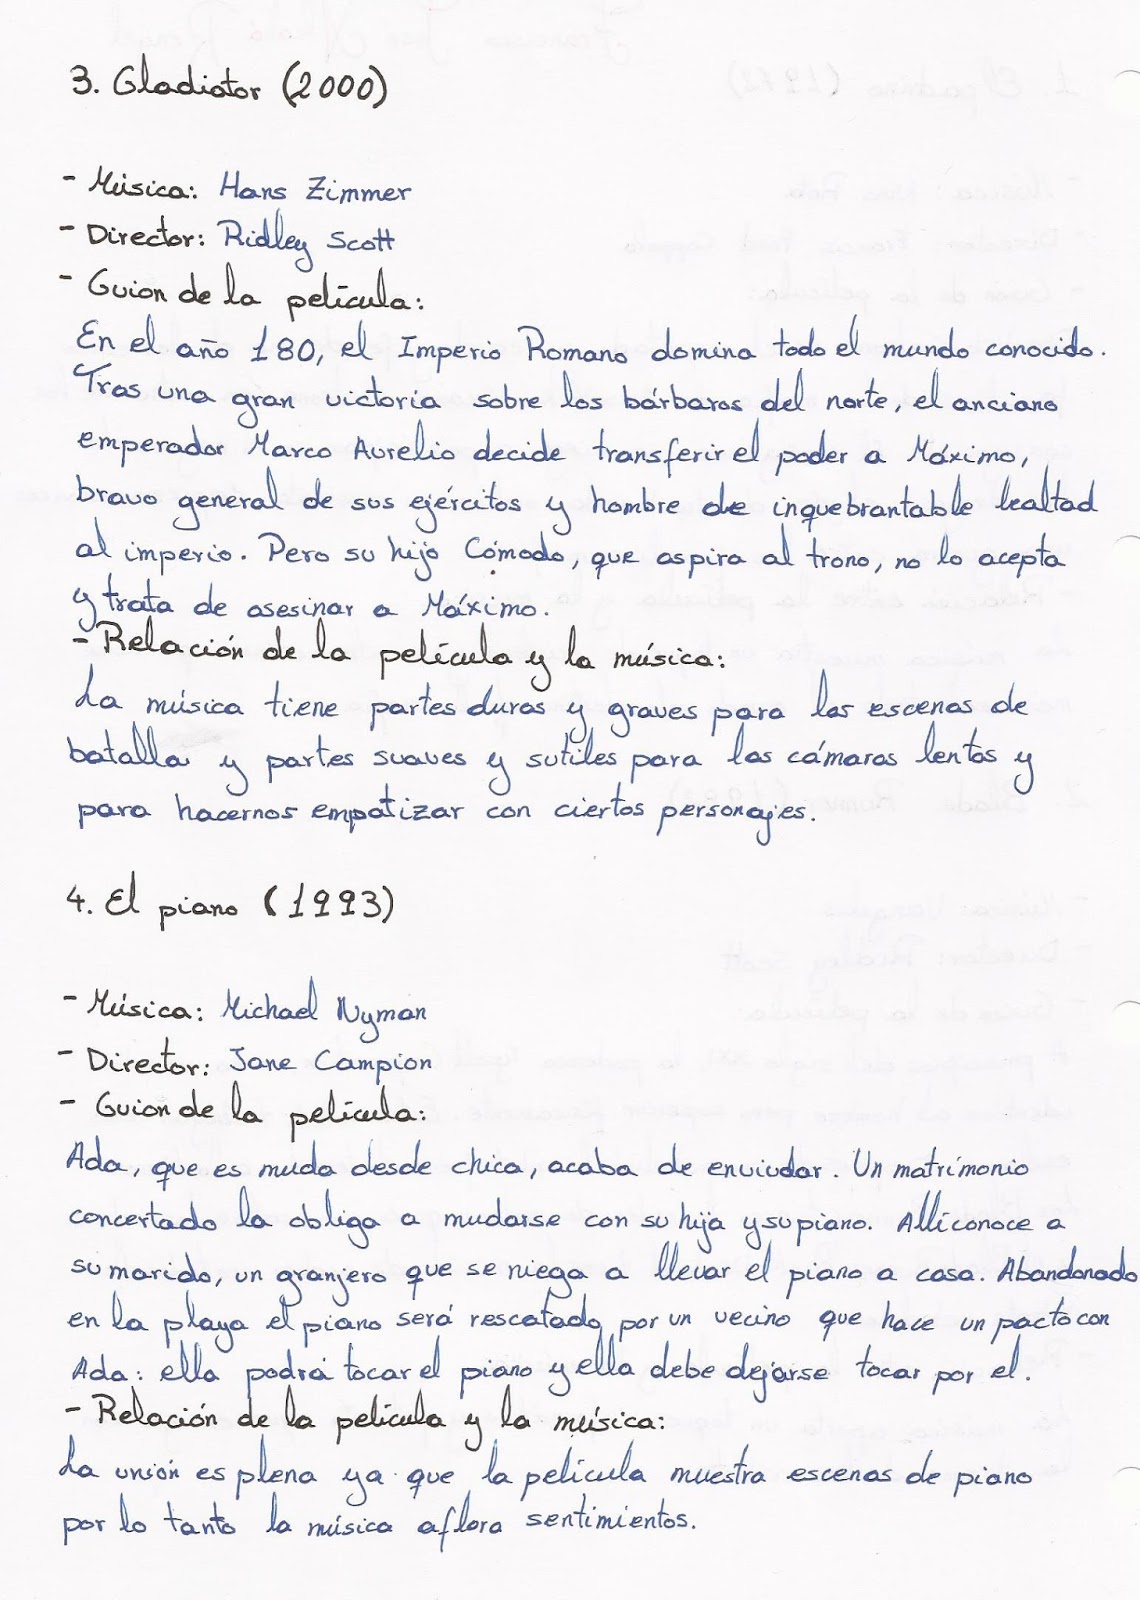 3. Gladiator (2000)
- Música: Hans Zimmer
- Director: Ridley Scott
- Guion de la película:
En el año 180, el Imperio Romano domina todo el mundo conocido.
Tras una gran victoria sobre los bárbaros del norte, el anciano
emperador Marco Aurelio decide transferir el poder a Máximo,
bravo general de sus ejércitos y hombre de inquebrantable lealtad
al imperio. Pero su hijo Cómodo, que aspira al trono, no lo acepta
y trata de asesinar a Máximo.
- Relación de la película y la música:
La música tiene partes duras y graves para las escenas de
batalla y partes suaves y sutiles para las cámaras lentas y
para hacernos empatizar con ciertos personajes.
4. El piano (1993)
- Música: Michael Nyman
- Director: Jane Campion
- Guion de la película:
Ada, que es muda desde chica, acaba de enviudar. Un matrimonio
concertado la obliga a mudarse con su hija y su piano. Allí conoce a
su marido, un granjero que se niega a llevar el piano a casa. Abandonado
en la playa el piano será rescatado por un vecino que hace un pacto con
Ada: ella podrá tocar el piano y ella debe dejarse tocar por el.
- Relación de la película y la música:
La unión es plena ya que la película muestra escenas de piano
por lo tanto la música aflora sentimientos.